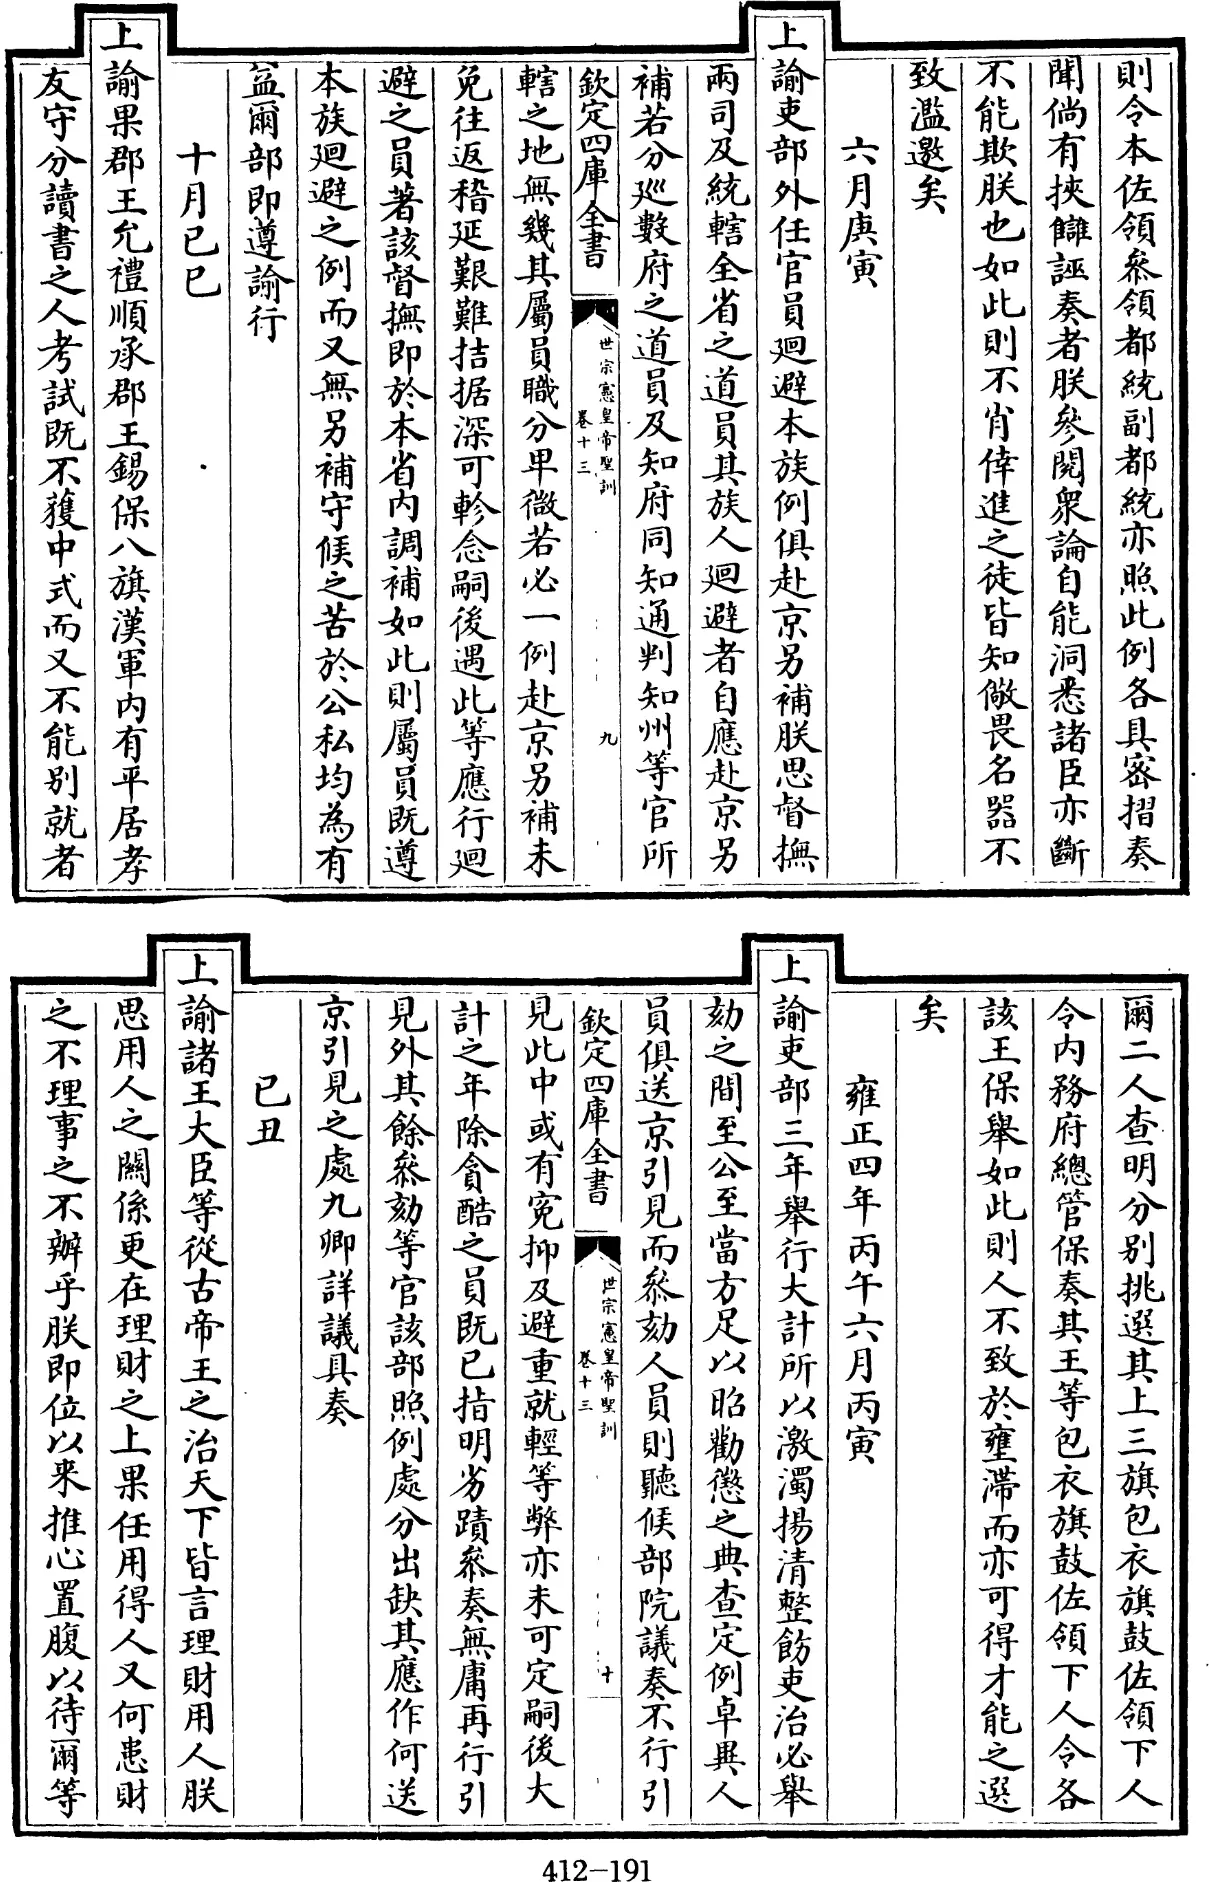 則令本佐領叅領都統副都統亦照此例各具密摺奏
聞倘有挾讎誣奏者朕參閱衆論自能洞悉諸臣亦斷
不能欺朕也如此則不肖倖進之徒皆知儆畏名器不
致濫邀矣
六月庚寅
上諭吏部外任官員廻避本族例俱赴京另補朕思督撫
兩司及統轄全省之道員其族人廻避者自應赴京另
補若分巡數府之道員及知府同知通判知州等官所
欽定四庫全書
世宗憲皇帝聖訓
卷十三
九
轄之地無幾其屬員職分卑微若必一例赴京另補未
免往返稽延艱難拮据深可軫念嗣後遇此等應行廻
避之員著該督撫即於本省内調補如此則屬員既遵
本族廻避之例而又無另補守候之苦於公私均為有
益爾部即遵諭行
十月己巳
上諭果郡王允禮順承郡王錫保八旗漢軍内有平居孝
友守分讀書之人考試既不獲中式而又不能别就者
爾二人查明分别挑選其上三旗包衣旗鼓佐領下人
令内務府總管保奏其王等包衣旗鼓佐領下人令各
該王保舉如此則人不致於壅滯而亦可得才能之選
矣
雍正四年丙午六月丙寅
上諭吏部三年舉行大計所以激濁揚清整飭吏治必舉
劾之間至公至當方足以昭勸懲之典查定例卓異人
員俱送京引見而叅劾人員則聽候部院議奏不行引
欽定四庫全書
世宗憲皇帝聖訓
卷十三
十
見此中或有寃抑及避重就輕等弊亦未可定嗣後大
計之年除貪酷之員既已指明劣蹟叅奏無庸再行引
見外其餘叅劾等官該部照例處分出缺其應作何送
京引見之處九卿詳議具奏
己丑
上諭諸王大臣等從古帝王之治天下皆言理財用人朕
思用人之關係更在理財之上果任用得人又何患財
之不理事之不辦乎朕即位以來推心置腹以待爾等
412-191